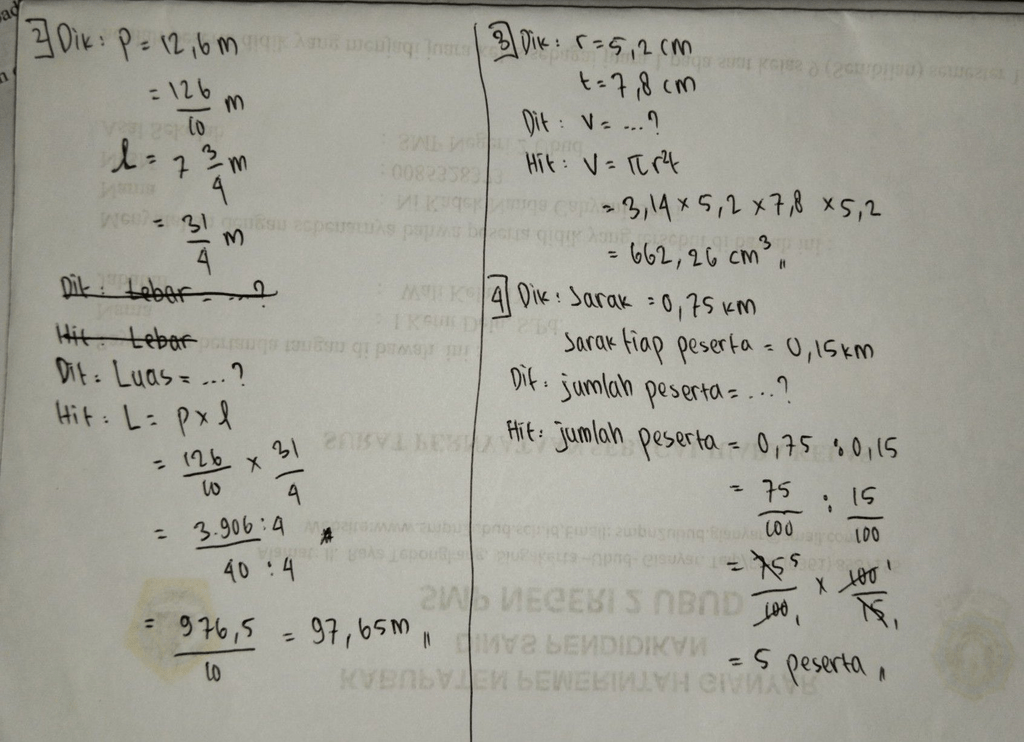 2] Dik: p = 12,6 m
= 126/10 m
l = 7 3/4 m
= 31/4 m
Dit: Lebar = ...?
Hit: Lebar
Dit: Luas = ...?
Hit: L = p x l
= 126/10 x 31/4
= 3.906 : 4 / 40 : 4
= 976,5/10 = 97,65 m,,
3] Dik: r = 5,2 cm
t = 7,8 cm
Dit: V = ...?
Hit: V = πr²t
= 3,14 x 5,2 x 7,8 x 5,2
= 662,26 cm³,,
4] Dik: Jarak = 0,75 km
Jarak tiap peserta = 0,15 km
Dit: jumlah peserta = ...?
Hit: jumlah peserta = 0,75 : 0,15
= 75/100 : 15/100
= 75 5/100 1 x 100 1/15 1
= 5 peserta,,
SURAT PERNYATAAN
SMP NEGERI 2 UBUD
DINAS PENDIDIKAN
KABUPATEN PEMERINTAH GIANYAR